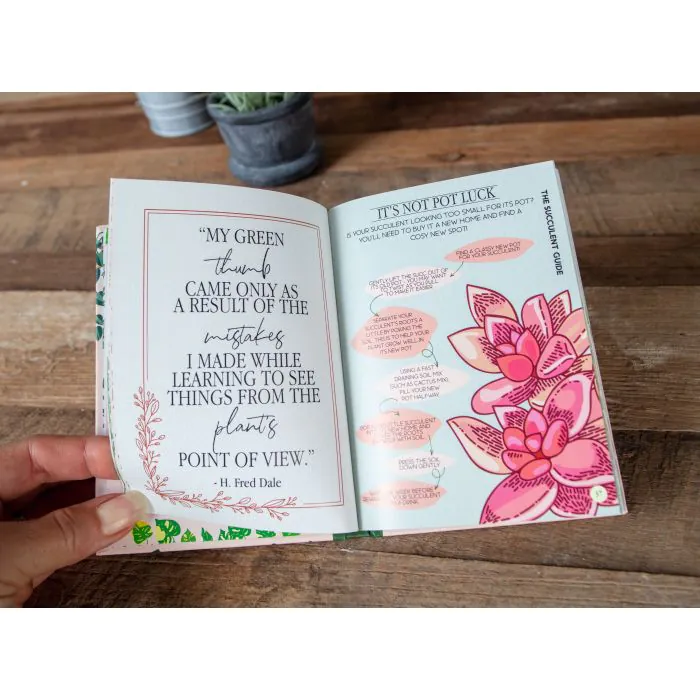 “MY GREEN
thumb
CAME ONLY AS
A RESULT OF THE
mistakes
I MADE WHILE
LEARNING TO SEE
THINGS FROM THE
plant's
POINT OF VIEW.”
- H. Fred Dale
IT'S NOT POT LUCK
IS YOUR SUCCULENT LOOKING TOO SMALL FOR ITS POT?
YOU'LL NEED TO BUY IT A NEW HOME AND FIND A
COSY NEW SPOT!
THE SUCCULENT GUIDE
FIND A CLASSY NEW POT
FOR YOUR SUCCULENT!
GENTLY LIFT THE SUCC OUT OF
ITS OLD POT. YOU MAY WANT
TO TWIST AS YOU PULL
TO MAKE IT EASIER.
SEPARATE YOUR
SUCCULENT'S ROOTS A
LITTLE BY POKING THE
SOIL. THIS IS TO HELP YOUR
PLANT GROW WELL IN
ITS NEW POT.
USING A FAST
DRAINING SOIL MIX
(SUCH AS CACTUS MIX),
FILL YOUR NEW
POT HALFWAY.
LITTLE SUCCULENT
NEW HOME AND
THE ROOTS
WITH SOIL.
PRESS THE SOIL
DOWN GENTLY.
WEEK BEFORE
YOUR SUCCULENT
DRINK.